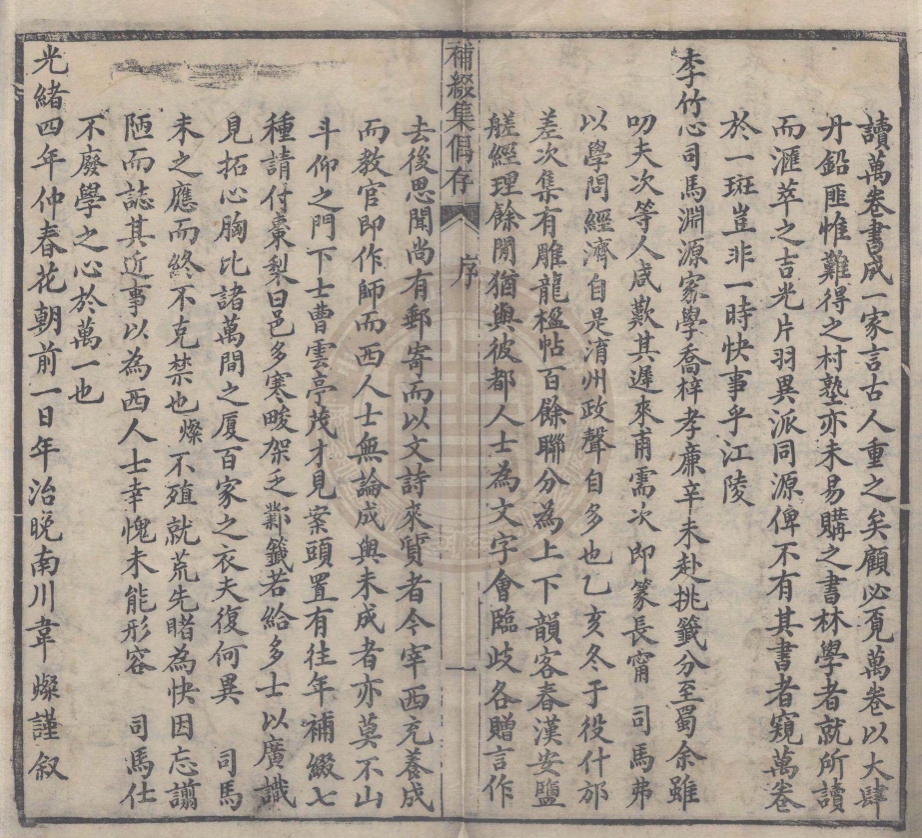 讀萬卷書成一家言古人重之矣顧必覓萬卷以大肆
丹鉛匪惟難得之村塾亦未易購之書林學者就所讀
而滙萃之吉光片羽異派同源俾不有其書者窺萬卷
於一斑豈非一時快事乎江陵
李竹心司馬淵源家學喬梓孝廉辛未赴挑籤分至蜀余雖
叨夫次等人咸歎其遲來甫需次即篆長甯 司馬弗
以學問經濟自是淯州政聲自多也乙亥冬于役什邡
差次集有雕龍楹帖百餘聯分為上下韻客春漢安鹽
艖經理餘閒猶與彼都人士為文字會臨歧各贈言作
補綴集偶存 序 一
去後思聞尚有郵寄而以文詩來質者今宰西充養成
而教官即作師而西人士無論成與未成者亦莫不山
斗仰之門下士曹雲亭茂才見案頭置有往年補綴七
種請付棗梨曰邑多寒畯架乏鄴籤若給多士以廣識
見拓心胸比諸萬間之厦百家之衣夫復何異 司馬
未之應而終不克禁也燦不殖就荒先睹為快因忘譾
陋而誌其近事以為西人士幸愧未能形容 司馬仕
不廢學之心於萬一也
光緒四年仲春花朝前一日年治晚南川韋燦謹叙